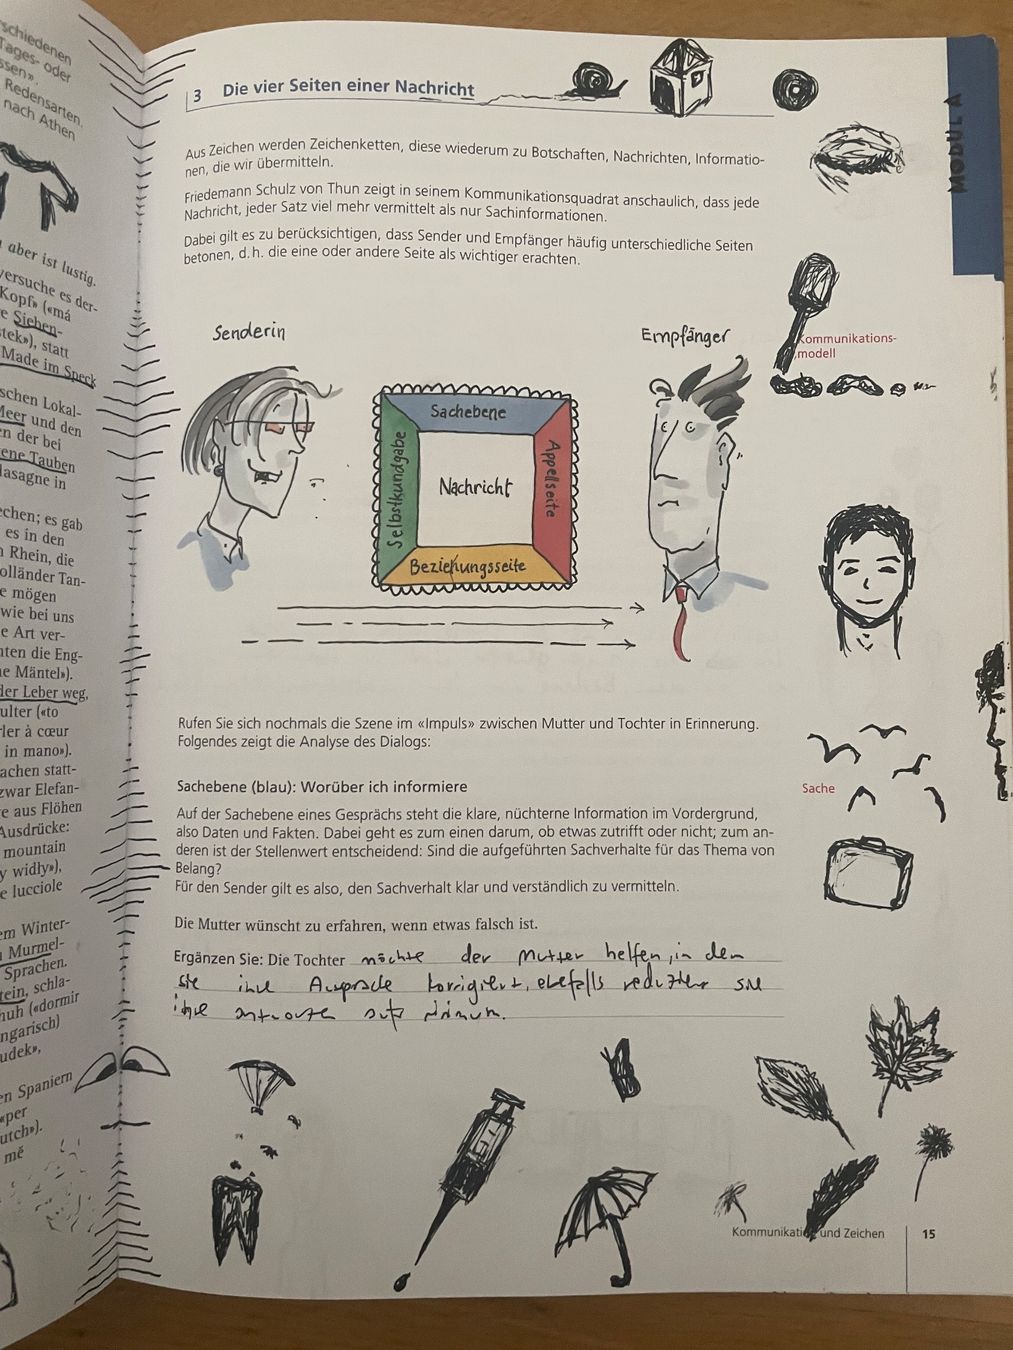 schiedenen
Tages- oder
ssen».
Redensarten.
nach Athen
aber ist lustig.
versuche es der-
Kopf» («má
e Sieben-
stek»), statt
Made im Speck
schen Lokal-
Meer und den
en der bei
ene Tauben
lasagne in
echen; es gab
es in den
n Rhein, die
olländer Tan-
e mögen
wie bei uns
e Art ver-
nten die Eng-
ne Mäntel»).
der Leber weg,
ulter («to
rler à cœur
in mano»).
achen statt-
zwar Elefan-
e aus Flöhen
Ausdrücke:
mountain
y widły»),
e lucciole
em Winter-
n Murmel-
Sprachen.
tein, schla-
huh («dormir
ngarisch)
udek»,
en Spaniern
«per
utch»).
mě
3 Die vier Seiten einer Nachricht
MODUL A
Aus Zeichen werden Zeichenketten, diese wiederum zu Botschaften, Nachrichten, Informatio-
nen, die wir übermitteln.
Friedemann Schulz von Thun zeigt in seinem Kommunikationsquadrat anschaulich, dass jede
Nachricht, jeder Satz viel mehr vermittelt als nur Sachinformationen.
Dabei gilt es zu berücksichtigen, dass Sender und Empfänger häufig unterschiedliche Seiten
betonen, d. h. die eine oder andere Seite als wichtiger erachten.
Kommunikations-
modell
Senderin
Empfänger
Sachebene
Selbstkundgabe
Nachricht
Appellseite
Beziehungsseite
Rufen Sie sich nochmals die Szene im «Impuls» zwischen Mutter und Tochter in Erinnerung.
Folgendes zeigt die Analyse des Dialogs:
Sachebene (blau): Worüber ich informiere
Sache
Auf der Sachebene eines Gesprächs steht die klare, nüchterne Information im Vordergrund,
also Daten und Fakten. Dabei geht es zum einen darum, ob etwas zutrifft oder nicht; zum an-
deren ist der Stellenwert entscheidend: Sind die aufgeführten Sachverhalte für das Thema von
Belang?
Für den Sender gilt es also, den Sachverhalt klar und verständlich zu vermitteln.
Die Mutter wünscht zu erfahren, wenn etwas falsch ist.
Ergänzen Sie: Die Tochter möchte der Mutter helfen, in dem
sie ihre Aussprache korrigiert, sie
ihre antworten aufs minimum.
Kommunikation und Zeichen
15